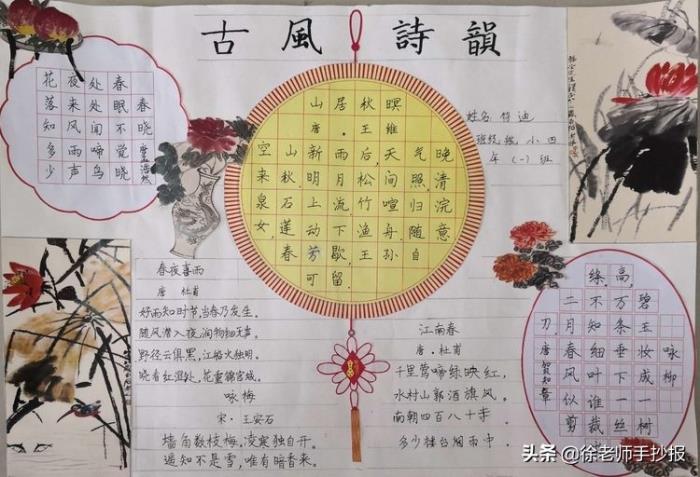 古風詩韻
春晓
孟浩然
春眠不觉晓
处处闻啼鸟
夜来风雨声
花落知多少
山居秋暝
唐·王维
空山新雨后天气晚
来秋.明月松间照.清
泉石上流.竹喧归浣
女,莲动下渔舟.随意
春芳歇王孙自
可留
姓名:
班级: 小四
年(一)班
春夜喜雨
唐 杜甫
好雨知时节,当春乃发生。
随风潜入夜,润物细无声。
野径云俱黑,江船火独明。
晓看红湿处,花重锦官城。
咏梅
宋·王安石
墙角数枝梅,凌寒独自开。
遥知不是雪,唯有暗香来。
江南春
唐·杜甫
千里莺啼绿映红,
水村山郭酒旗风。
南朝四百八十寺,
多少楼台烟雨中。
咏柳
唐贺知章
碧王妆成一树高,
万条垂下一丝绦,
不知细叶谁裁
二月春风似剪刀,
头条 @徐老师手抄报